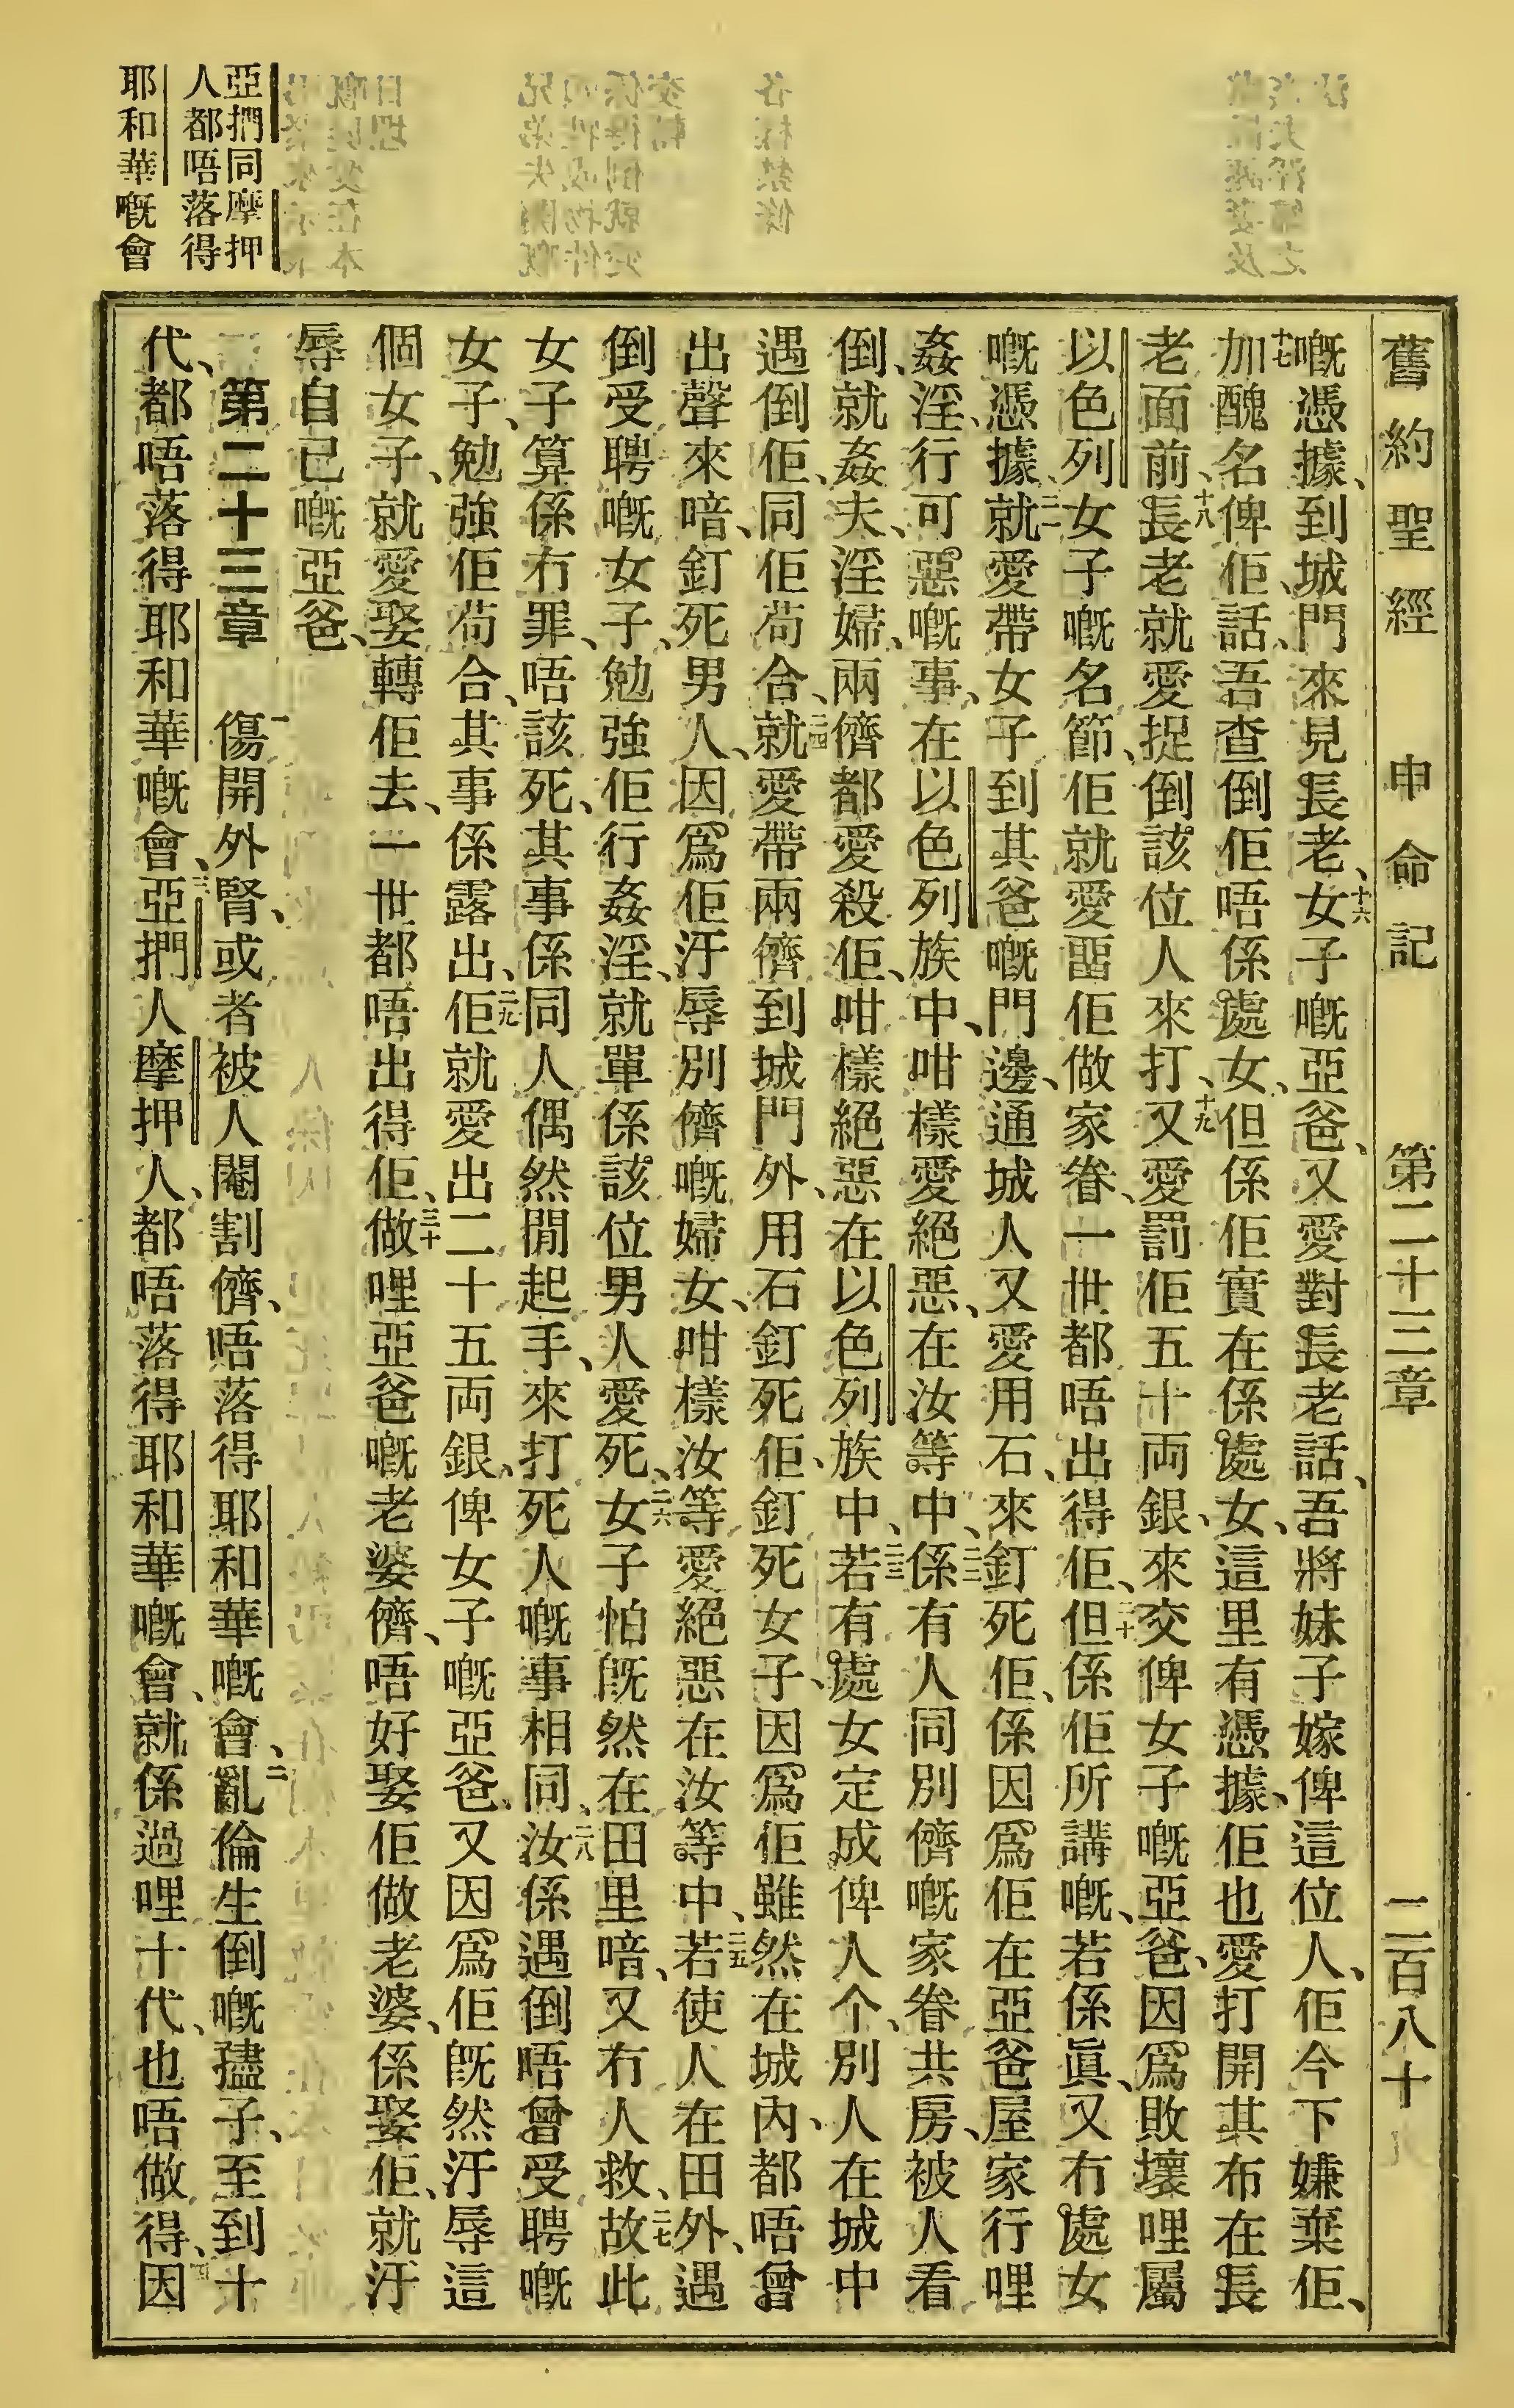 舊約聖經 申命記 第二十三章 二百八十
嘅憑據、到城門來見長老、十六女子嘅亞爸、又愛對長老話、吾將妹子嫁俾這位人、佢今下嫌棄佢、
十七加醜名俾佢、話、吾查倒佢唔係處女、但係佢實在係處女、這里有憑據、佢也愛打開其布在長
老面前、十八長老就愛捉倒該位人來打、十九又愛罰佢五十両銀、來交俾女子嘅亞爸、因爲敗壞哩屬
以色列女子嘅名節、佢就愛留佢做家眷、一世都唔出得佢、二十但係佢所講嘅、若係眞、又冇處女
嘅憑據、二一就愛帶女子到其爸嘅門邊、通城人又愛用石、來釘死佢、係因爲佢在亞爸屋家行哩
姦淫、行可惡嘅事、在以色列族中、咁樣愛絕惡、在汝等中、二二係有人同別儕嘅家眷共房、被人看
倒、就姦夫、淫婦、兩儕都愛殺佢、咁樣絕惡在以色列族中、二三若有處女定成俾人个、別人在城中
遇倒佢、同佢苟合、二四就愛帶兩儕到城門外、用石釘死佢、釘死女子、因爲佢雖然在城內、都唔曾
出聲來喑、釘死男人、因爲佢汙辱別儕嘅婦女、咁樣汝等愛絕惡在汝等中、二五若使人在田外、遇
倒受聘嘅女子、勉強佢行姦淫、就單係該位男人愛死、二六女子怕旣然在田里喑、又冇人救、二七故此
女子算係冇罪、唔該死、其事係同人偶然閒起手、來打死人嘅事相同、二八汝係遇倒唔曾受聘嘅
女子、勉強佢苟合、其事係露出、二九佢就愛出二十五両銀、俾女子嘅亞爸、又因爲佢旣然汙辱這
個女子、就愛娶轉佢去、一世都唔出得佢、三十做哩亞爸嘅老婆儕、唔好娶佢做老婆、係娶佢、就汙
辱自己嘅亞爸、
第二十三章 一傷開外腎、或者被人閹割儕、唔落得耶和華嘅會、二亂倫生倒嘅孽子、至到十
代、都唔落得耶和華嘅會、三亞捫人摩押人、都唔落得耶和華嘅會、就係過哩十代、也唔做得、四因
亞捫同摩押
人都唔落得
耶和華嘅會